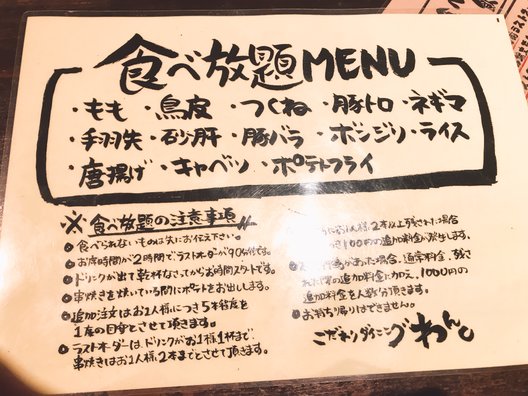 食べ放題MENU
・もも ・鳥皮 ・つくね ・豚トロ ・ネギマ
・手羽先 ・砂肝 ・豚バラ ・ボンジリ ・ライス
・唐揚げ ・キャベツ ・ポテトフライ
※食べ放題の注意事項
食べられないものは先にお伝え下さい。
お席時間が2時間でラストオーダーが90分です。
ドリンクが出て乾杯なさってからお時間スタートです。
串焼きを焼いている間にポテトをお出しします。
追加注文はお1人様につき5本程度を
1度の目安とさせて頂きます。
ラストオーダーは、ドリンクがお1人様1杯まで、
串焼きはお1人様2本までとさせて頂きます。
お1人様2本以上残された場合
100円の追加料金が発生します。
場合、通常料金、残さ
れた際の追加料金に加え、1000円の
追加料金を人数分頂きます。
お持ち帰りはできません。
こだわりダイニングわん